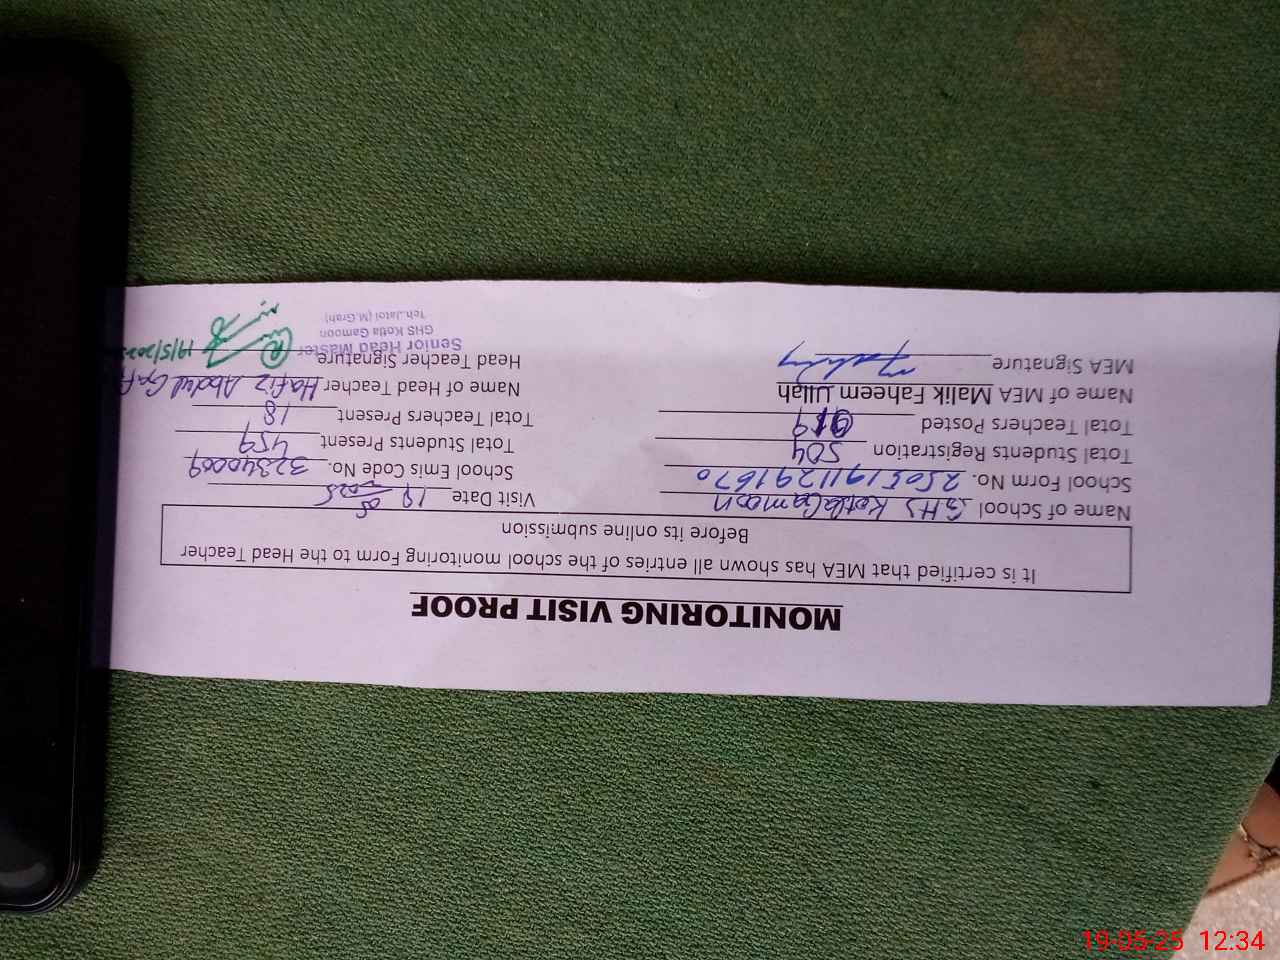 MONITORING VISIT PROOF
It is certified that MEA has shown all entries of the school monitoring Form to the Head Teacher
Before its online submission
Name of School GHS Kotla Gamoon Visit Date 19 05 2025
School Form No. 25051911291670 School Emis Code No. 32340009
Total Students Registration 504 Total Students Present 459
Total Teachers Posted 19 Total Teachers Present 18
Name of MEA Malik Faheem Ullah Name of Head Teacher Hafiz Abdul
MEA Signature Head Teacher Signature 19/5/202
Senior Head Master
GHS Kotla Gamoon
Teh. Jatoi (M.Grah)
19-05-25 12:34